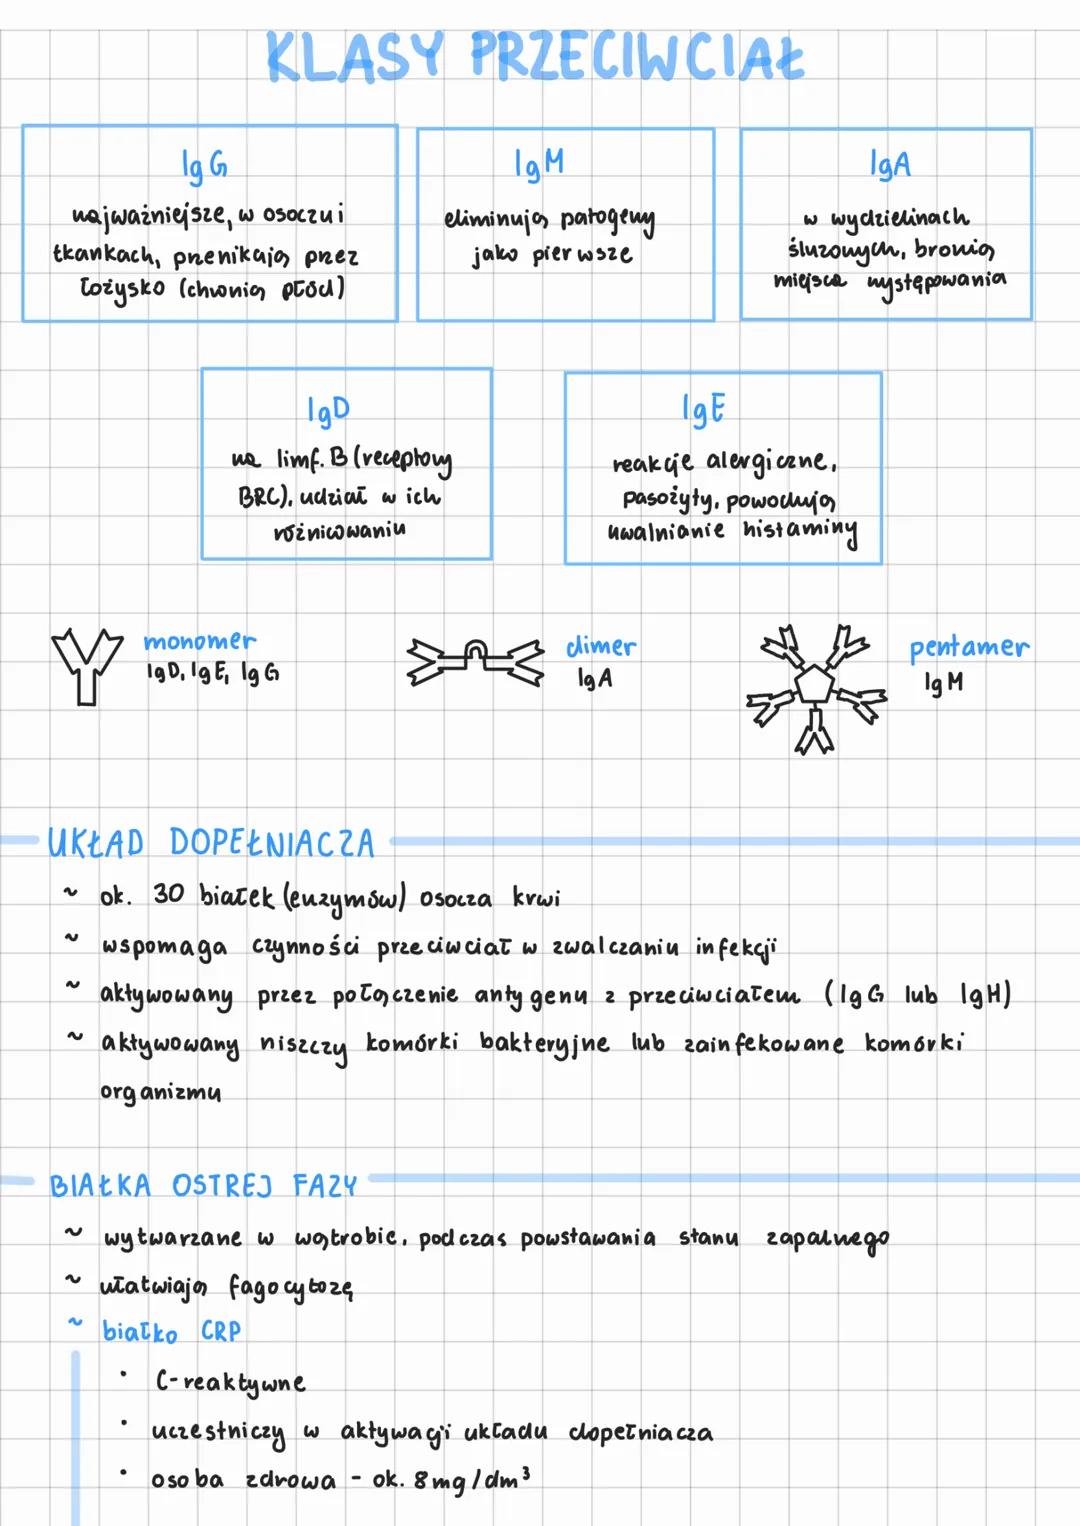 KLASY PRZECIWCIAŁ
IgG
najważniejsze, w osoczu i
tkankach, przenikają przez
łożysko (chronią płód)
IgM
eliminują patogeny
jako pierwsze
IgA
w wydzielinach
śluzowych, bronią
miejsca występowania
IgD
na limf. B (receptory
BRC), udział w ich
różnicowaniu
IgE
reakcje alergiczne,
pasożyty, powodują
uwalnianie histaminy
monomer
IgD, IgE, IgG
dimer
IgA
pentamer
IgM
UKŁAD DOPEŁNIACZA
~ ok. 30 białek (enzymów) osocza krwi
~ wspomaga czynności przeciwciał w zwalczaniu infekcji
~ aktywowany przez połączenie antygenu z przeciwciałem (IgG lub IgH)
~ aktywowany niszczy komórki bakteryjne lub zainfekowane komórki
organizmu
BIAŁKA OSTREJ FAZY
~ wytwarzane w wątrobie, podczas powstawania stanu zapalnego
~ ułatwiają fagocytozę
~ białko CRP
· C-reaktywne
· uczestniczy w aktywacji układu dopełniacza
· osoba zdrowa - ok. 8mg/dm³